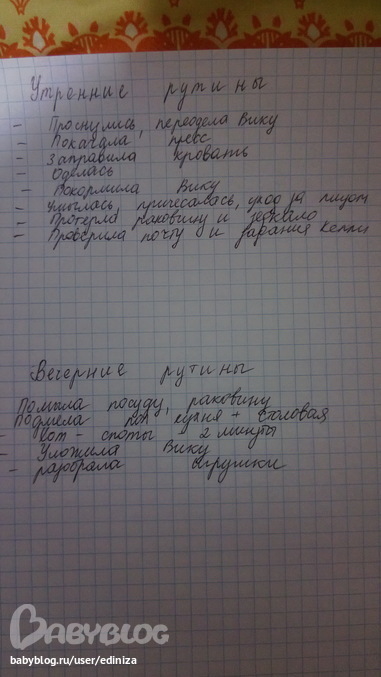 Утренние рутины
- Проснулись, переодела Вику
- Покачала пресс
- Заправила кровать
- Оделась
- Покормила Вику
- Умылась, причесалась, уход за лицом
- Протерла раковину и зеркало
- Проверила почту и задания Келли
Вечерние рутины
Помыла посуду, раковину
Подмела пол кухня + столовая
- Хот - споты 2 минуты
- Уложила Вику
- разобрала игрушки
BABYBLOG
babyblog.ru/user/ediniza